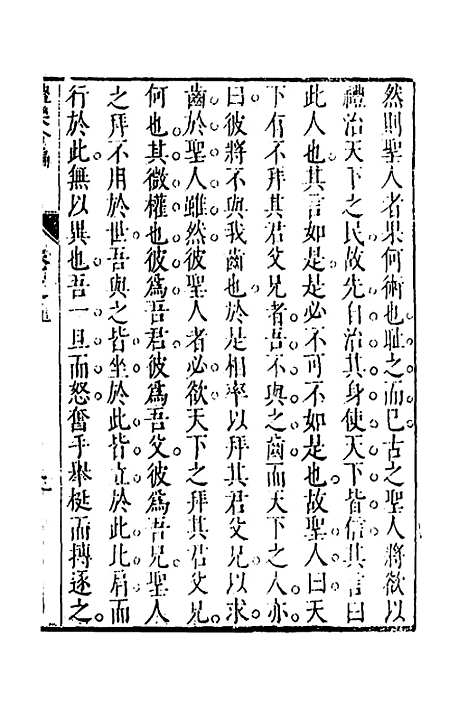 然則聖人者果何術也耻之而巳古之聖人將欲以
禮治天下之民故先自治其身使天下皆信其言曰
此人也其言如是是必不可不如是也故聖人曰天
下有不拜其君父兄者吾不與之齒而天下之人亦
曰彼將不與我齒也於是相率以拜其君父兄以求
齒於聖人雖然彼聖人者必欲天下之拜其君父兄
何也其微權也彼爲吾君彼爲吾父彼爲吾兄聖人
之拜不用於世吾與之皆坐於此皆立於此比肩而
行於此無以異也吾一旦而怒奮手舉梃而搏逐之